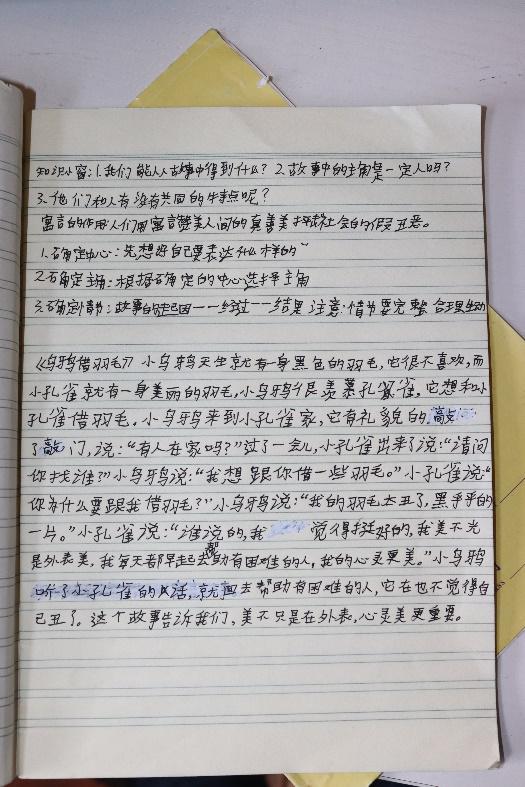 知识小窗:1.我们能从故事中得到什么?2.故事中的主角是一定人吗?
3.他们和人有没有共同的特点呢?
寓言的作用人们用寓言赞美人间的真善美抨击社会的假丑恶。
1.确定中心:先想好自己要表达什么样的
2.确定主角:根据确定的中心选择主角
3.确定情节:故事的起因——经过——结果 注意:情节要完整 合理生动
《乌鸦借羽毛》小乌鸦天生就有一身黑色的羽毛,它很不喜欢,而
小孔雀就有一身美丽的羽毛,小乌鸦很羡慕孔雀,它想和小
孔雀借羽毛。小乌鸦来到小孔雀家,它有礼貌的敲
了敲门,说:“有人在家吗?”过了一会儿,小孔雀出来了说:“请问
你找谁?”小乌鸦说:“我想跟你借一些羽毛。”小孔雀说:“
你为什么要跟我借羽毛?”小乌鸦说:“我的羽毛太丑了,黑乎乎的
一片。”小孔雀说:“谁说的,我觉得挺好的,我美不光
是外表美,我每天都早起去帮助有困难的人,我的心灵更美。”小乌鸦
听了小孔雀的话,就回去帮助有困难的人,它在也不觉得自
己丑了。这个故事告诉我们,美不只是在外表,心灵美更重要。